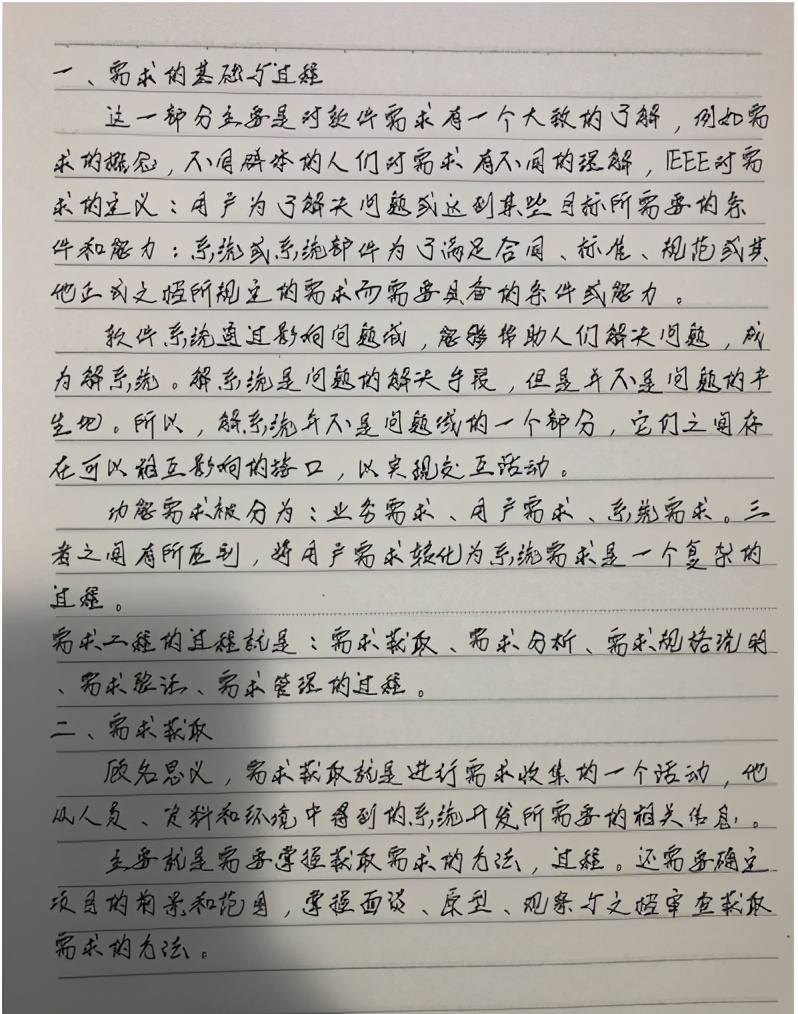 一、需求的基础与过程
这一部分主要是对软件需求有一个大致的了解，例如需
求的概念，不同群体的人们对需求有不同的理解，IEEE对需
求的定义：用户为了解决问题或达到某些目标所需要的条
件和能力；系统或系统部件为了满足合同、标准、规范或其
他正式文档所规定的需求而需要具备的条件或能力。
软件系统通过影响问题域，能够帮助人们解决问题，成
为解系统。解系统是问题的解决手段，但是并不是问题的产
生地。所以，解系统并不是问题域的一个部分，它们之间存
在可以相互影响的接口，以实现交互活动。
功能需求被分为：业务需求、用户需求、系统需求。三
者之间有所区别，将用户需求转化为系统需求是一个复杂的
过程。
需求工程的过程就是：需求获取、需求分析、需求规格说明
、需求验证、需求管理的过程。
二、需求获取
顾名思义，需求获取就是进行需求收集的一个活动，他
从人员、资料和环境中得到的系统开发所需要的相关信息。
主要就是需要掌握获取需求的方法，过程。还需要确定
项目的前景和范围，掌握面谈、原型、观察与文档审查获取
需求的方法。